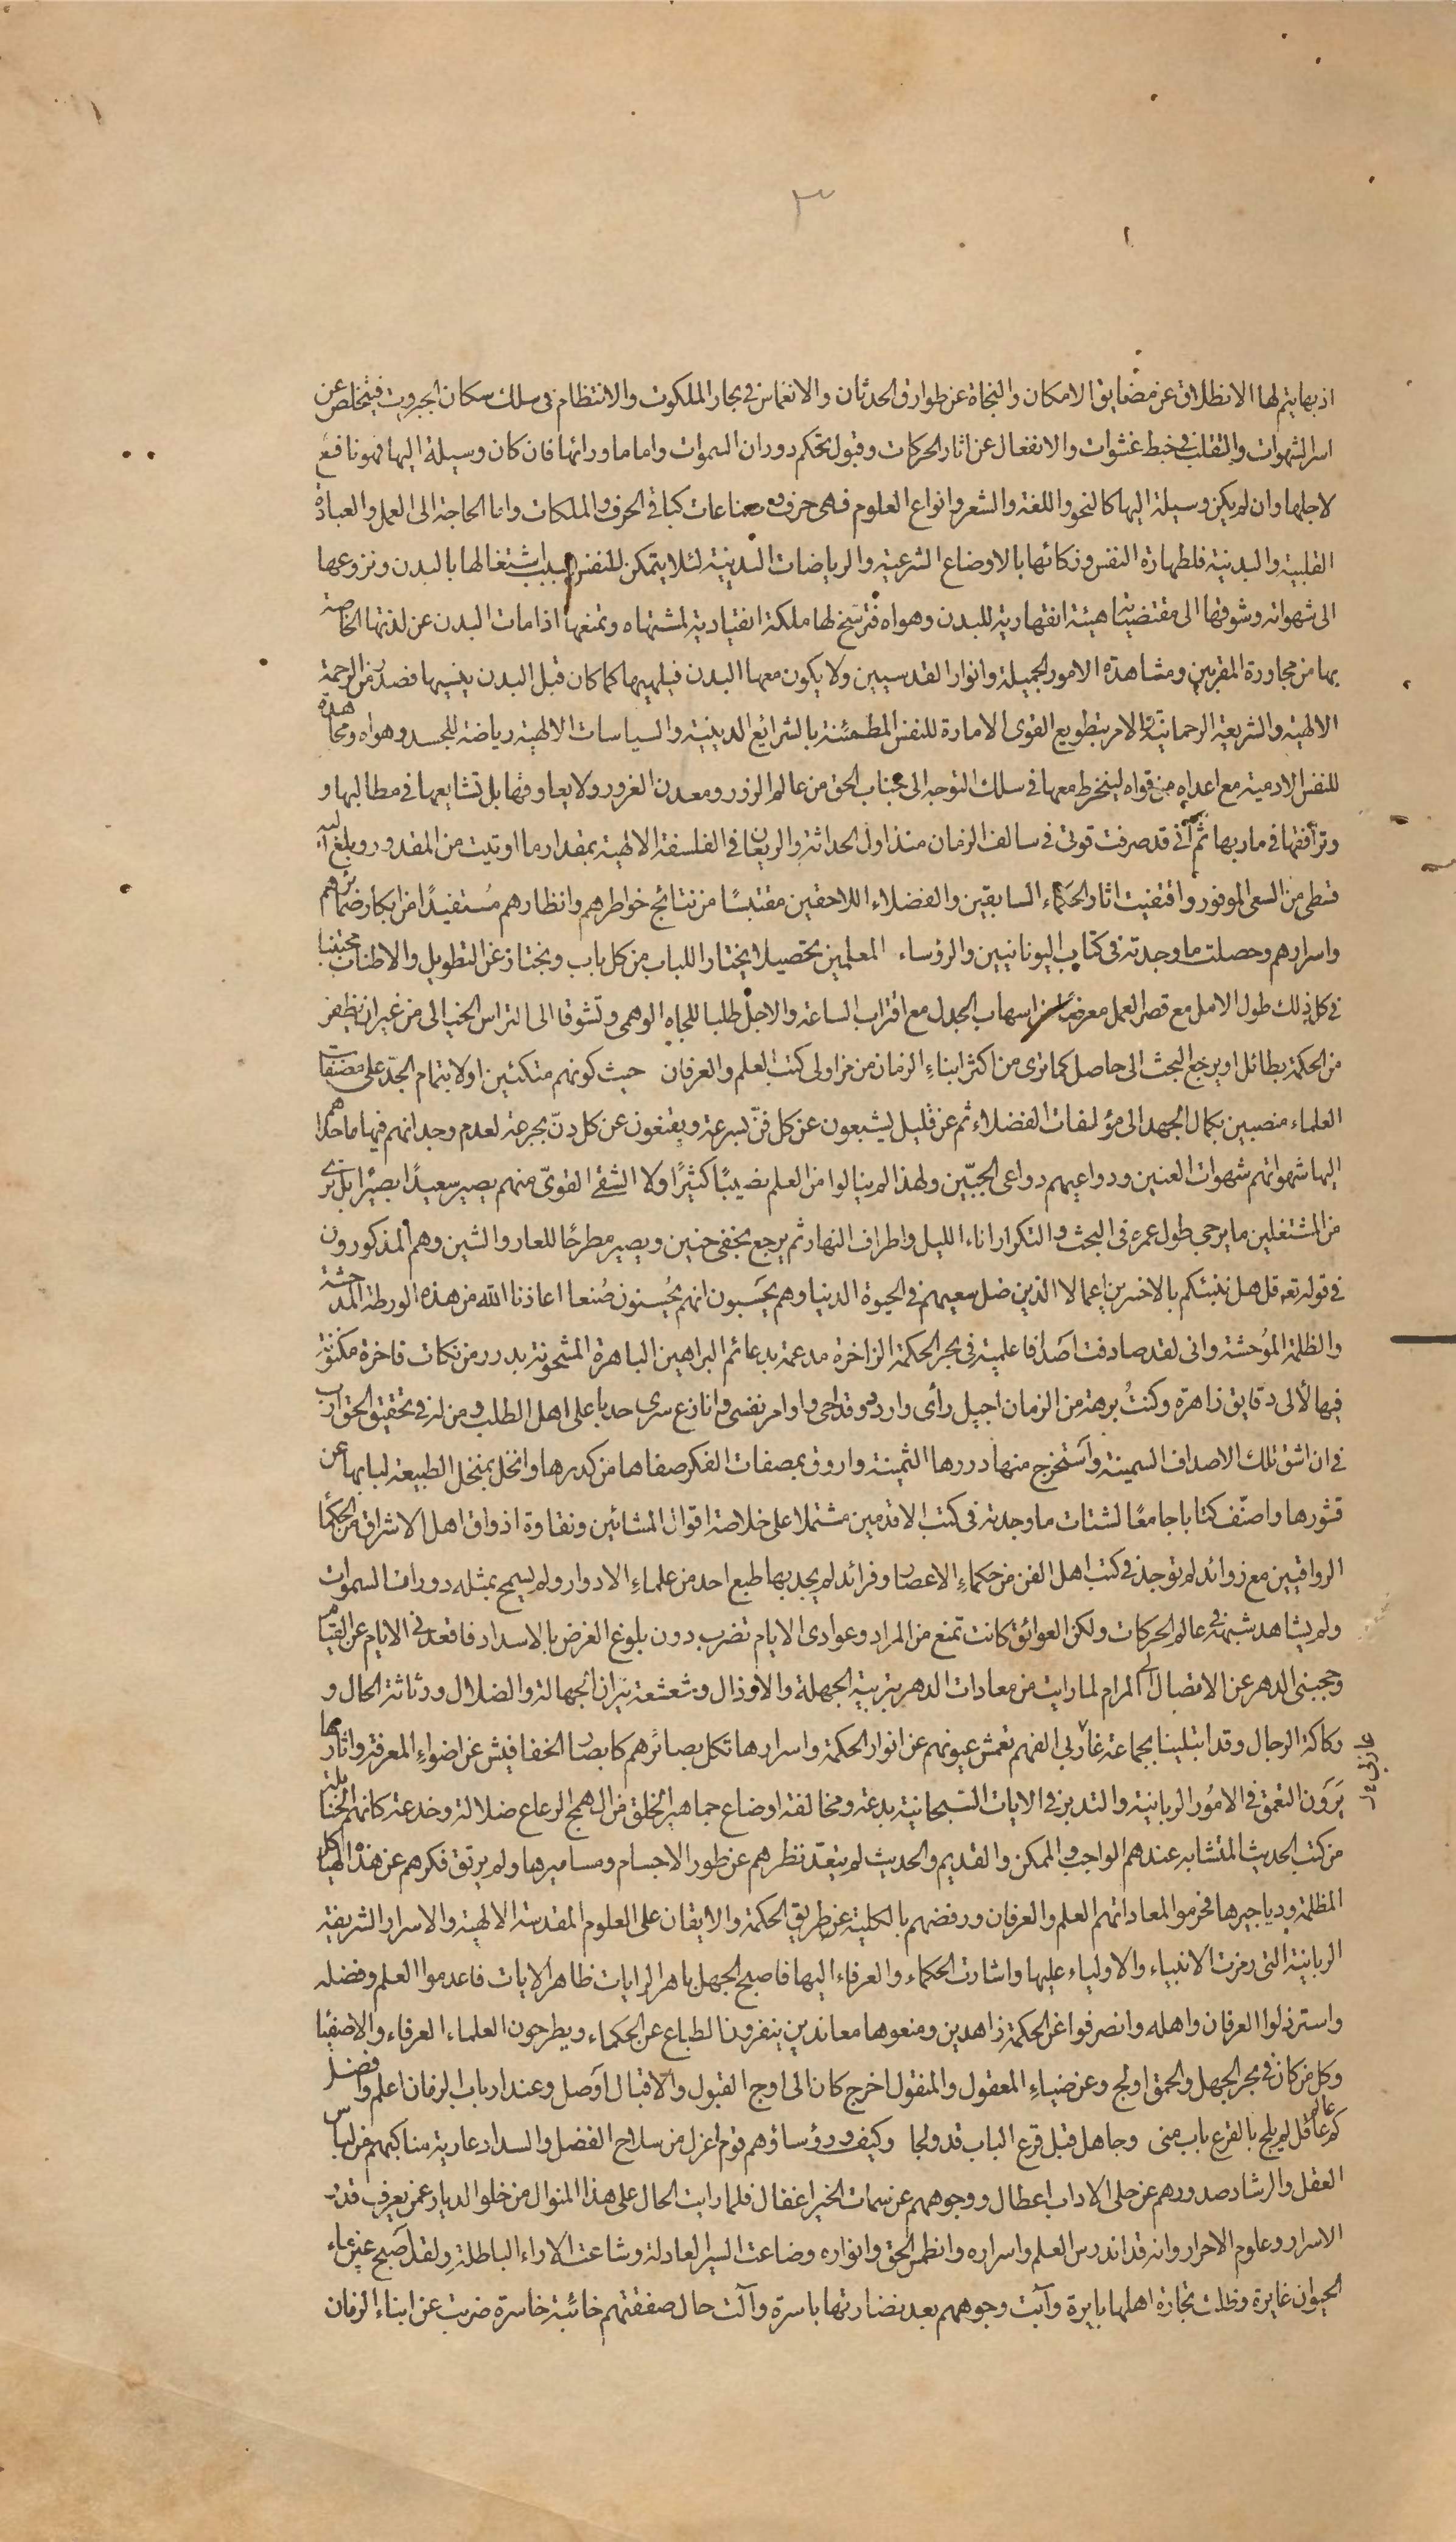 ٣
اذ بها يتم لها الانطلاق عن مضايق الامكان والنجاة عن طوارق الحدثان والانغماس في بحار الملكوت والانتظام في سلك سكان الجبروت فيتخلص عن
اسر الشهوات والتقلب في خبط عشوات والانفعال عن اثار الحركات وقبول تحكم دوران السموات واما ما ورائها فان كان وسيلة اليها فهو نافع
لاجلها وان لم يكن وسيلة اليها كالنحو واللغة والشعر وانواع العلوم فهى حرف وصناعات كباقى الحرف والملكات واما الحاجة الى العمل والعبادة
القلبية والبدنية فلطهارة النفس وزكائها بالاوضاع الشرعية والرياضات البدنية لئلا يتمكن للنفس بسبب اشتغالها بالبدن ونزوعها
الى شهواته وشوقها الى مقتضياته هيئة انقهارية للبدن وهواه فترسخ لها ملكة انقيادية لمشتهاه وتمنعها اذا مات البدن عن لذتها الخاصة
بها من مجاورة المقربين ومشاهدة الامور الجميلة وانوار القدسيين ولا يكون معها البدن فيلهيها كما كان قبل البدن ينسيها فصدر من الرحمة
الالهية والشريعة الرحمانية الامر بتطويع القوى الامارة للنفس المطمئنة بالشرايع الدينية والسياسات الالهية رياضة للجسد وهواه ومجاهدة
للنفس الادمية مع اعداه من قواه لينخرط معها في سلك التوجه الى جناب الحق من عالم الزور ومعدن الغرور ولا يعاوقها بل تشايعها في مطالبها و
وترافقها في ماربها ثم انى قد صرفت قوتى في سالف الزمان منذ اول الحداثة والريعان في الفلسفة الالهية بمقدار ما اوتيت من المقدور وبلغ اليه
قسطى من السعى الموفور واقتفيت اثار الحكماء السابقين والفضلاء اللاحقين مقتبسًا من نتائج خواطرهم وانظارهم مُستفيدًا من ابكار ضمائرهم
واسرارهم وحصلت ما وجدته في كتاب اليونانيين والرؤساء المعلمين تحصيلا يختار اللباب من كل باب ويجتاز عن التطويل والاطناب مجتنبا
في كل ذلك طول الامل مع قصر العمل معرضا عن اسهاب الجدل مع اقتراب الساعة والاجل طلبا للجاه الوهمى وتشوقا الى التراس الخيالى من غير ان يظفر
من الحكمة بطائل او يرجع البحث الى حاصل كما ترى من اكثر ابناء الزمان من مزاولى كتب العلم والعرفان حيث كونهم متكئين اولا بتمام الجدّ على مصنفات
العلماء منصبين بكمال الجهد الى مؤلفات الفضلاء ثم عن قليل يشبعون عن كل فنّ بسرعة ويقنعون عن كل دنّ بجرعة لعدم وجدانهم فيها ما حداهم
اليها شهواتهم شهوات العنين ودواعيهم دواعى الجنين ولهذا لم ينالوا من العلم نصيبًا كثيرًا ولا الشقى القوىّ منهم يصير سعيدًا بصيرًا بل ترى
من المشتغلين ما يرجى طول عمره في البحث والتكرار اناء الليل واطراف النهار ثم يرجع بخفى حنين ويصير مطرحًا للعار والشين وهم المذكورون
في قوله تعه قل هل ننبئكم بالاخسرين اعمالا الذين ضل سعيهم في الحيوة الدنيا وهم يحسَبون انهم يُحسنون صُنعا اعاذنا الله من هذه الورطة المدحشة
والظلمة المُوحشة وانى لقد صادفت اصدافا علمية في بحر الحكمة الزاخرة مدعمة بدعائم البراهين الباهرة المشحونة بدرر من نكات فاخرة مكنونة
فيها لألى دقايق زاهرة وكنتُ برهة من الزمان اجيل رأى واردد قداحى واوامر نفسى وانازع سرى حدبا على اهل الطلب ومن له في تحقيق الحق ارب
في ان اشق تلك الاصداف السمينة واستخرج منها دررها الثمينة واروق بمصفات الفكر صفاها من كدرها وانخل بمنخل الطبيعة لبابها عن
قشورها واصنّف كتابا جامعًا لشتات ما وجدته في كتب الاقدمين مشتملا على خلاصة اقوال المشائين ونقاوة اذواق اهل الاشراق من الحكماء
الرواقيين مع زوائد لم توجد في كتب اهل الفن من حكماء الاعصار وفرائد لم يجد بها طبع احد من علماء الادوار ولم يسمح بمثله دورات السموات
ولم يشاهد شبهه في عالم الحركات ولكن العوائق كانت تمنع من المراد وعوادى الايام تضرب دون بلوغ الغرض بالاسداد فاقعدنى الايام عن القيام
وحجبنى الدهر عن الاتصال الى المرام لما رايت من معادات الدهر بتربية الجهلة والارذال وشعشعة نيران الجهالة والضلال ورثاثة الحال و
ركاكة الرجال وقد ابتلينا بجماعة غاربى الفهم تعمش عيونهم عن انوار الحكمة واسرارها تكل بصائرهم كابصار الخفافيش عن اضواء المعرفة واثارها
يَرَون التعمق في الامُور الربانية والتدبر في الايات السّبحانية بدعة ومخالفة اوضاع جماهير الخلق من الهمج الرعاع ضلالة وخدعة كانهم الحنابلة
من كتب الحديث المتشابه عندهم الواجب والممكن والقديم والحديث لم يتعدّ نظرهم عن طور الاجسام ومساميرها ولم يرتق فكرهم عن هذه الهياكل
المظلمة ودياجيرها فحرموا لمعاداتهم العلم والعرفان ورفضهم بالكلية عن طريق الحكمة والايقان على العلوم المقدسة الالهية والاسرار الشريفة
الربانية التى رمزت الانبياء والاولياء عليها واشارت الحكماء والعرفاء اليها فاصبح الجهل باهر الرايات ظاهر الايات فاعدموا العلم وفضله
واسترذلوا العرفان واهله وانصرفوا عن الحكمة زاهدين ومنعوها معاندين ينفرون الطباع عن الحكماء ويطرحون العلماء العرفاء والاصفياء
وكل من كان في بحر الجهل والحمق اولج وعن ضياء المعقول والمنقول اخرج كان الى اوج القبول والاقبال اوصل وعند ارباب الزمان اعلم وافضل
كم عالم عاقل لم يلج بالقرع باب منى وجاهل قبل قرع الباب قد ولجا وكيف ورؤساؤهم قوم اعزل من سلاح الفضل والسداد عارية مناكبهم من لباس
العقل والرشاد صدورهم عن حلى الاداب اعطال ووجوههم عن سمات الخير اغفال فلما رايت الحال على هذا المنوال من خلو الديار عمن يعرف قدر
الاسرار وعلوم الاحرار وانه قد اندرس العلم واسراره وانطمس الحق وانواره وضاعت السير العادلة وشاعت الاراء الباطلة ولقد اصبح عين ماء
الحيوان غايرة وظلت تجارة اهلها بايرة وآبت وجوههم بعد نضارتها باسرة وآلت حال صفقتهم خائبة خاسرة ضربت عن ابناء الزمان